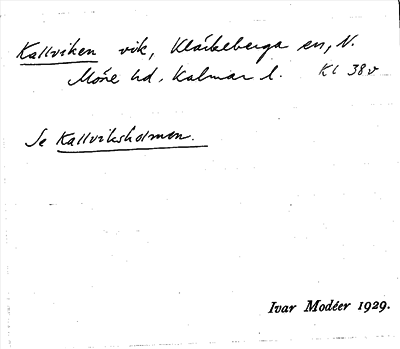 Kallviken vik, Kläckeberga sn, N.
Möre hd. Kalmar l. Kl 38v
Se Kallviksholmen.
Ivar Modéer 1929.